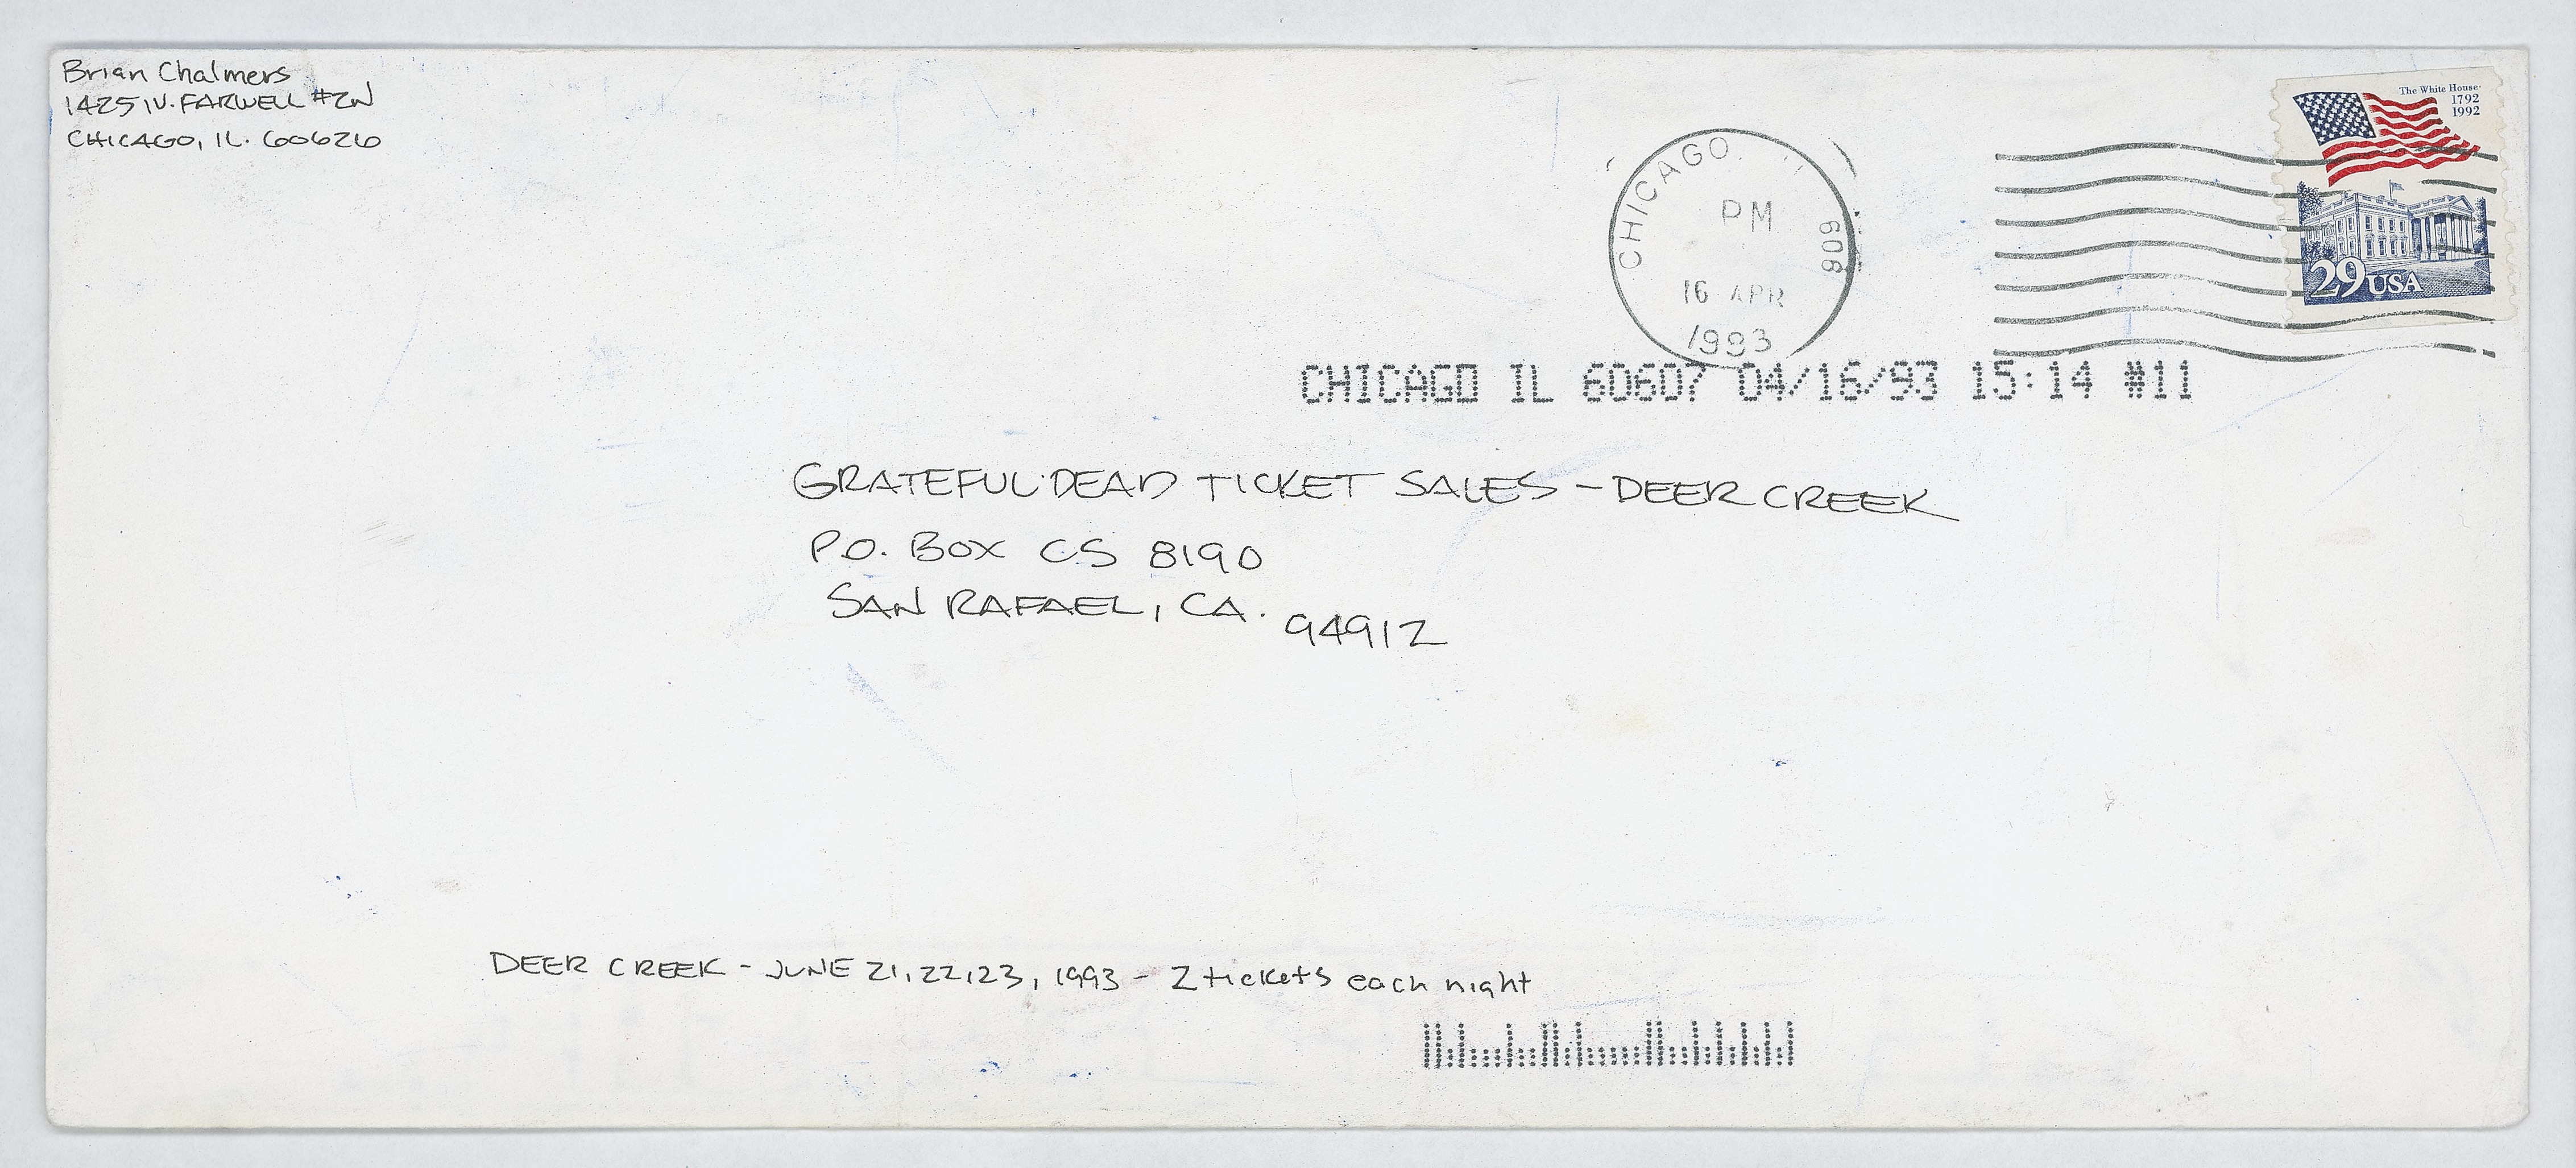 Brian Chalmers
1425 W. FARWELL #2W
CHICAGO, IL. 60626
The White House
1792
1992
29 USA
CHICAGO
606
PM
16 APR
1993
CHICAGO IL 60607 04/16/93 15:14 #11
GRATEFUL DEAD TICKET SALES - DEER CREEK
P.O. BOX CS 8190
SAN RAFAEL, CA. 94912
DEER CREEK - JUNE 21, 22, 23, 1993 - 2 tickets each night